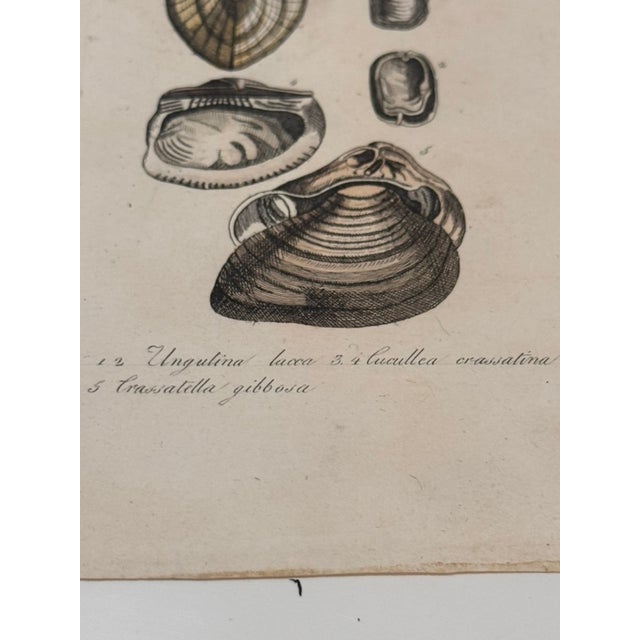 4
2
5
1 2 Ungulina lacca 3. 4 Cucullea crassatina
5 Crassatella gibbosa